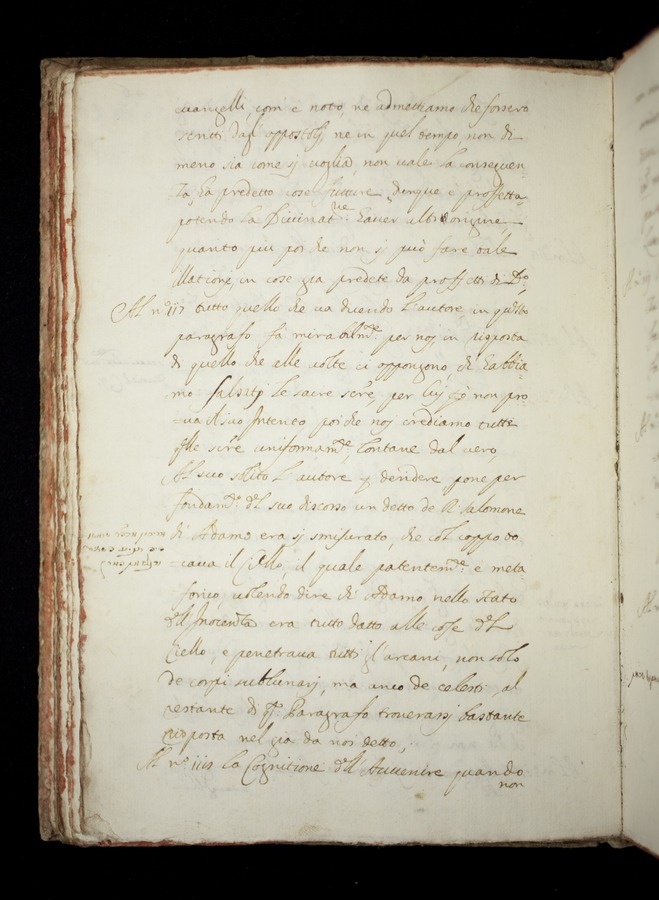 uangelli, com'è noto, ne admettiamo che fossero
scritti dagl'appostoli, ne in quel tempo, non di
meno sia come si voglia, non vale la conseguen-
za, ha predetto cose future, dunque è proffetta
potendo la Divinat.ne haver altr'origine,
quanto più poi che non si può fare tale
illatione, in cose gia predete da proffetti di D.o
Al n.o 117 tutto quello che va dicendo l'autore in questo
paragrafo fà mirabilm.te per noj in risposta
di quello che alle volte ci oppongono, che habbia-
mo falsato le sacre scr.e, per ciò non pro-
va il suo Intento poiche noj crediamo tutte
q.lle scr.e uniformam.te, lontane dal vero,
Al suo solito l'autore p deridere pone per
fondam.to del suo discorso un detto de R. Salomone
di Adamo era sj smisurato, che col coppo to-
cava il Ciello, il quale patentem.te è meta-
forico, volendo dire che Adamo nello stato
dell'Inocenza era tutto datto alle cose del
Ciello, e penetrava tutti gl'arcani, non solo
de corpi sublunarj, ma anco de celesti, al
restante di q.o Paragrafo troverassj bastante
risposta nel gia da noi detto,
Al n.o 118 la Cognitione dell'Auvenire quando
non